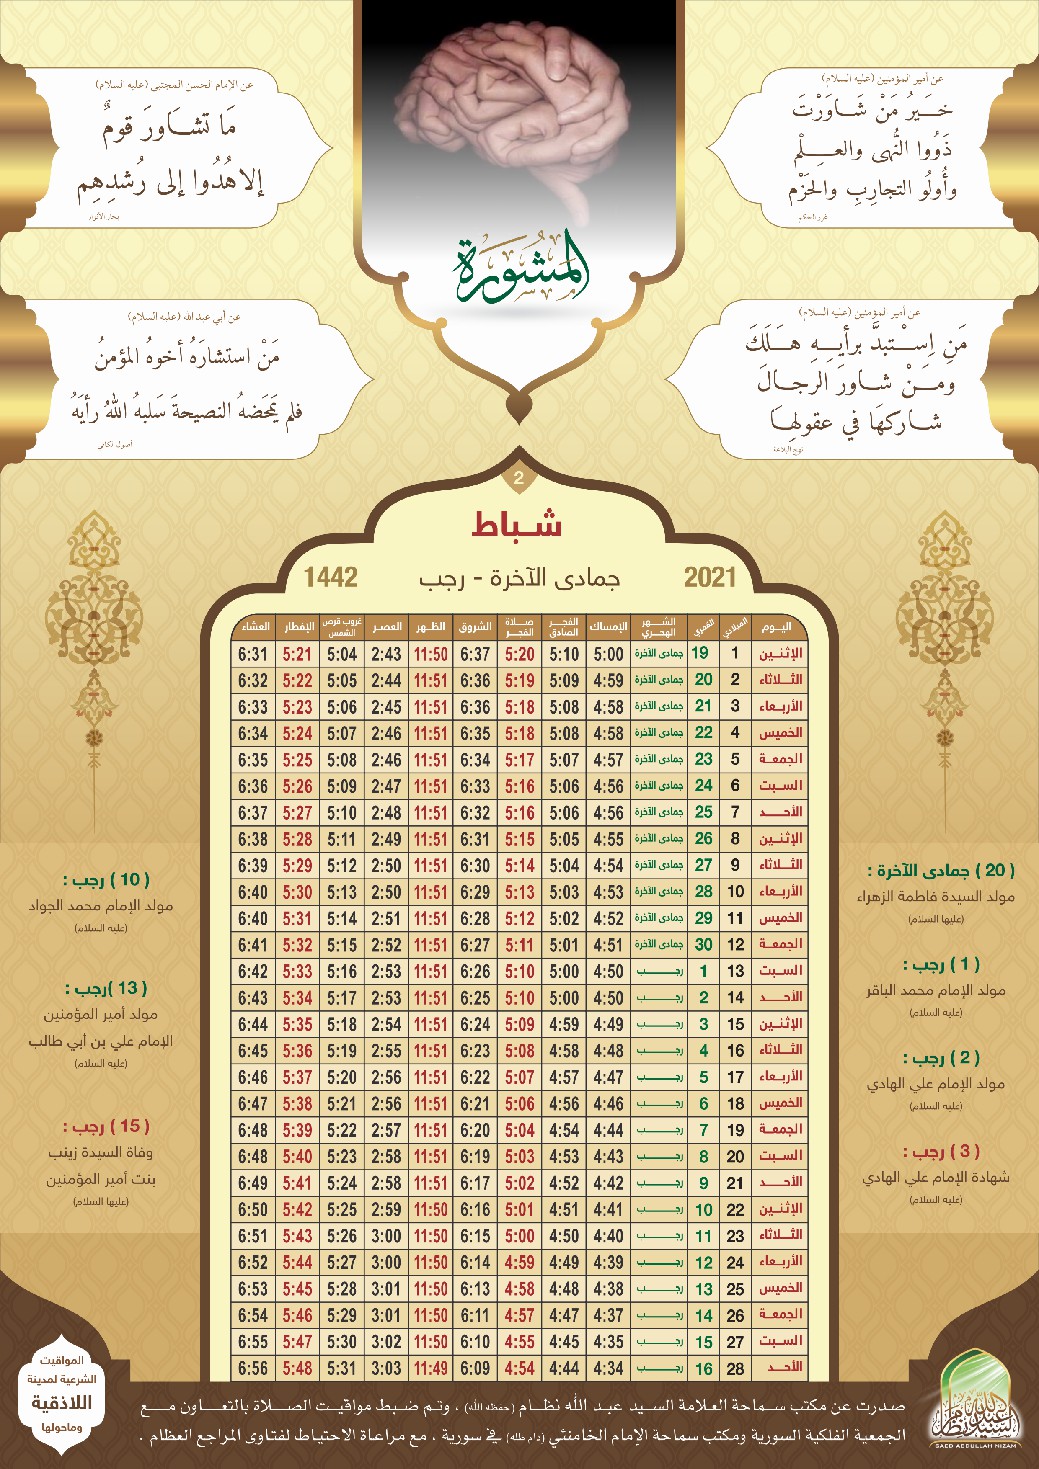 عن أمير المؤمنين (عليه السلام)
خَـيـرُ مَنْ شَـاوَرْتَ
ذَوُوا النُّهى والعِـلْم
وأُولُو التجارِبِ والحَزْم
غرر الحكم
عن الإمام الحسن المجتبى (عليه السلام)
مَا تشَـاوَرَ قومٌ
إلا هُدُوا إلى رُشدِهِم
بحار الأنوار
المَشُورَة
عن أمير المؤمنين (عليه السلام)
مَنِ اِسْـتبدَّ برأيِـهِ هَـلَكَ
ومَـنْ شـاورَ الرجـالَ
شـاركهَا في عقولِهَا
نهج البلاغة
عن أبي عبد الله (عليه السلام)
مَنْ استشارَهُ أخوهُ المؤمنُ
فلم يَمحَضهُ النصيحةَ سَلبهُ اللهُ رأيَهُ
أصول الكافي
2
شـبـاط
2021 جمادى الآخرة - رجب 1442
اليوم الميلادي القمري الشـهـر الهجري الإمساك الفجـر الصادق صـلاة الفجـر الشروق الظـهر العصـر غروب قرص الشمس الإفطار العشاء
الإثنـين 1 19 جمادى الآخرة 5:00 5:10 5:20 6:37 11:50 2:43 5:04 5:21 6:31
الثـلاثاء 2 20 جمادى الآخرة 4:59 5:09 5:19 6:36 11:51 2:44 5:05 5:22 6:32
الأربـعاء 3 21 جمادى الآخرة 4:58 5:08 5:18 6:36 11:51 2:45 5:06 5:23 6:33
الخميس 4 22 جمادى الآخرة 4:58 5:08 5:18 6:35 11:51 2:46 5:07 5:24 6:34
الجمعـة 5 23 جمادى الآخرة 4:57 5:07 5:17 6:34 11:51 2:46 5:08 5:25 6:35
السـبت 6 24 جمادى الآخرة 4:56 5:06 5:16 6:33 11:51 2:47 5:09 5:26 6:36
الأحــد 7 25 جمادى الآخرة 4:56 5:06 5:16 6:32 11:51 2:48 5:10 5:27 6:37
الإثنـين 8 26 جمادى الآخرة 4:55 5:05 5:15 6:31 11:51 2:49 5:11 5:28 6:38
الثـلاثاء 9 27 جمادى الآخرة 4:54 5:04 5:14 6:30 11:51 2:50 5:12 5:29 6:39
الأربـعاء 10 28 جمادى الآخرة 4:53 5:03 5:13 6:29 11:51 2:50 5:13 5:30 6:40
الخميس 11 29 جمادى الآخرة 4:52 5:02 5:12 6:28 11:51 2:51 5:14 5:31 6:40
الجمعـة 12 30 جمادى الآخرة 4:51 5:01 5:11 6:27 11:51 2:52 5:15 5:32 6:41
السـبت 13 1 رجــب 4:50 5:00 5:10 6:26 11:51 2:53 5:16 5:33 6:42
الأحــد 14 2 رجــب 4:50 5:00 5:10 6:25 11:51 2:53 5:17 5:34 6:43
الإثنـين 15 3 رجــب 4:49 4:59 5:09 6:24 11:51 2:54 5:18 5:35 6:44
الثـلاثاء 16 4 رجــب 4:48 4:58 5:08 6:23 11:51 2:55 5:19 5:36 6:45
الأربـعاء 17 5 رجــب 4:47 4:57 5:07 6:22 11:51 2:56 5:20 5:37 6:46
الخميس 18 6 رجــب 4:46 4:56 5:06 6:21 11:51 2:56 5:21 5:38 6:47
الجمعـة 19 7 رجــب 4:44 4:54 5:04 6:20 11:51 2:57 5:22 5:39 6:48
السـبت 20 8 رجــب 4:43 4:53 5:03 6:19 11:51 2:58 5:23 5:40 6:48
الأحــد 21 9 رجــب 4:42 4:52 5:02 6:17 11:51 2:58 5:24 5:41 6:49
الإثنـين 22 10 رجــب 4:41 4:51 5:01 6:16 11:50 2:59 5:25 5:42 6:50
الثـلاثاء 23 11 رجــب 4:40 4:50 5:00 6:15 11:50 3:00 5:26 5:43 6:51
الأربـعاء 24 12 رجــب 4:39 4:49 4:59 6:14 11:50 3:00 5:27 5:44 6:52
الخميس 25 13 رجــب 4:38 4:48 4:58 6:13 11:50 3:01 5:28 5:45 6:53
الجمعـة 26 14 رجــب 4:37 4:47 4:57 6:11 11:50 3:01 5:29 5:46 6:54
السـبت 27 15 رجــب 4:35 4:45 4:55 6:10 11:50 3:02 5:30 5:47 6:55
الأحــد 28 16 رجــب 4:34 4:44 4:54 6:09 11:49 3:03 5:31 5:48 6:56
( 20 ) جمادى الآخرة :
مولد السيدة فاطمة الزهراء
(عليها السلام)
( 1 ) رجب :
مولد الإمام محمد الباقر
(عليه السلام)
( 2 ) رجب :
مولد الإمام علي الهادي
(عليه السلام)
( 3 ) رجب :
شهادة الإمام علي الهادي
(عليه السلام)
( 10 ) رجب :
مولد الإمام محمد الجواد
(عليه السلام)
( 13 )رجب :
مولد أمير المؤمنين
الإمام علي بن أبي طالب
(عليه السلام)
( 15 ) رجب :
وفاة السيدة زينب
بنت أمير المؤمنين
(عليها السلام)
صدرت عن مكتب سماحة العلامة السيد عبد الله نظـام (حفظه الله) ، وتم ضبط مواقيت الصـلاة بالتعـاون مـع
الجمعية الفلكية السورية ومكتب سماحة الإمام الخامنئي (دام ظله) في سورية ، مع مراعاة الاحتياط لفتاوى المراجع العظام .
المواقيت
الشرعية لمدينة
اللاذقية
وماحولها
السيد عبد الله نظام
SAED ABDULLAH NIZAM